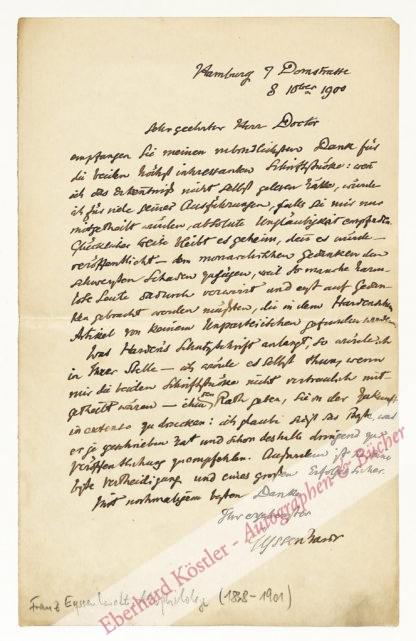 Hamburg 7 Domstrasse
8 10ber 1900
Sehr geehrter Herr Doctor
empfangen Sie meinen verbindlichsten Dank für
die beiden höchst interessanten Schriftstücke: wenn
ich das Erkenntniß nicht selbst gelesen hätte, würde
ich für viele seiner Ausführungen, falls sie mir nur
mitgetheilt würden, absolute Ungläubigkeit empfinden.
Glücklicher Weise bleibt es geheim, denn es würde –
veröffentlicht – dem monarchischen Gedanken den
schwersten Schaden zufügen, weil so manche harm-
lose Leute dadurch verwirrt und erst auf Gedan-
ken gebracht werden müßten, die in dem Hardenschen
Artikel von keinem Unparteiischen gefunden werden
Was Hardens Schutzschrift anlangt, so würde ich
in Ihrer Stelle – ich würde es selbst thun, wenn
mir die beiden Schriftstücke nicht vertraulich mit-
getheilt wären – ihm den Rath geben, sie in der Zukunft
in extenso zu drucken: ich glaube es ist das Beste, was
er je geschrieben hat und schon deshalb dringend zur
Veröffentlichung zu empfehlen. Außerdem ist es seine
beste Vertheidigung und eines großen Erfolges sicher.
Mit nochmaligem besten Danke
Ihr ergebenster
Eyssenhardt
Franz Eyssenhardt, Altphilologe (1838-1901)
Eberhard Köstler - Autographen & Bücher